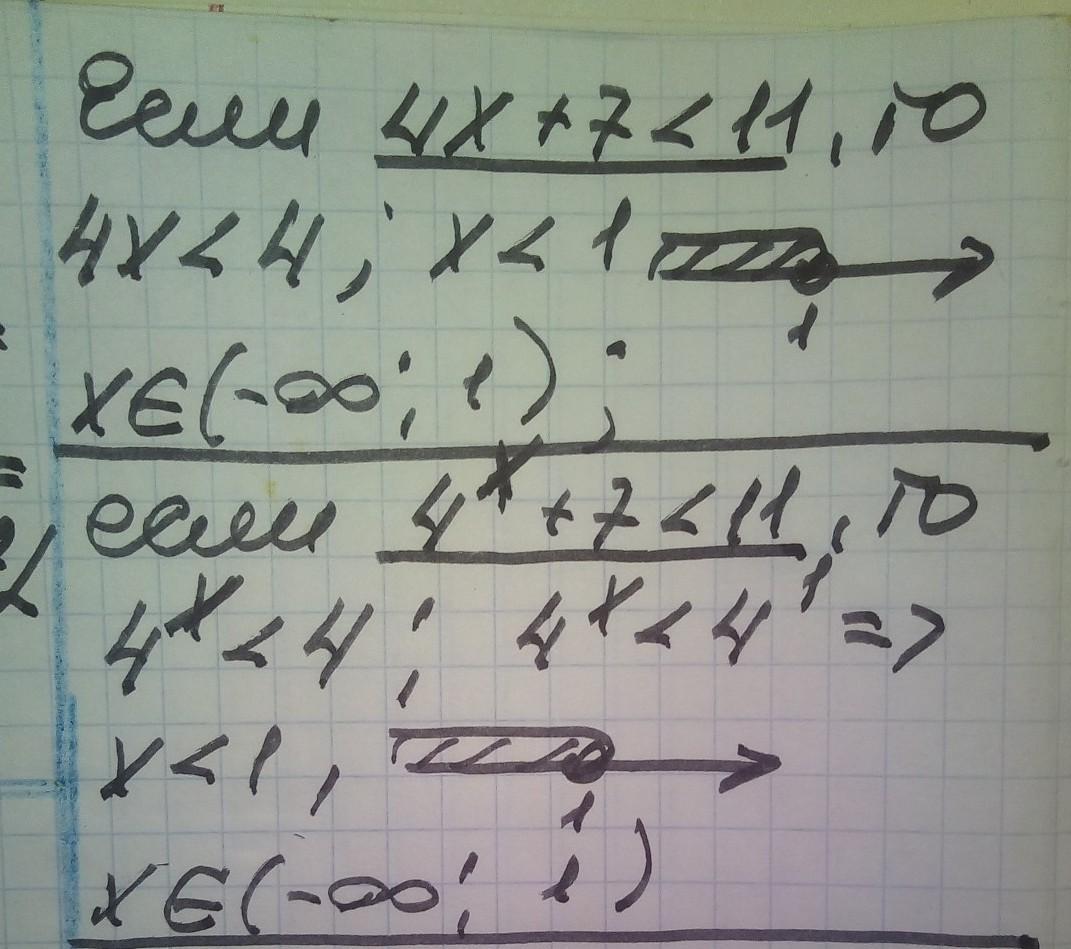 Если 4x + 7 < 11, то
4x < 4; x < 1
1
x∈(-∞; 1);
если 4ˣ + 7 < 11, то
4ˣ < 4; 4ˣ < 4¹ =>
x < 1,
1
x∈(-∞; 1)